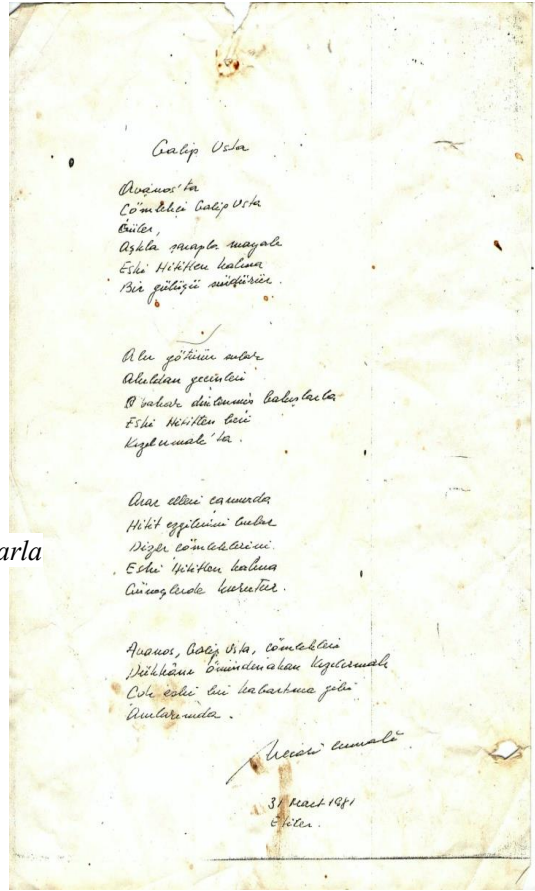 Galip Usta
Avanos'ta
Çömlekçi Galip Usta
Güler,
Aşkla şarapla mayalı
Eski Hititten kalma
Bir gülüşü sürdürür.
Alır götürür sular
Akıldan geçenleri
O bakar dinlenmiş bakışlarla
Eski Hititten beri
Kızılırmak'ta.
Arar elleri çamurda
Hitit ezgilerini bulur
Dizer çömleklerini.
Eski Hititten kalma
Güneşlerde kurutur.
arla
Avanos, Galip Usta, çömlekleri
Dükkânı önünden akan Kızılırmak
Çok eski bir kabartma gibi
Anılarımda.
Necati Cumalı
31 Mart 1981
Etiler.